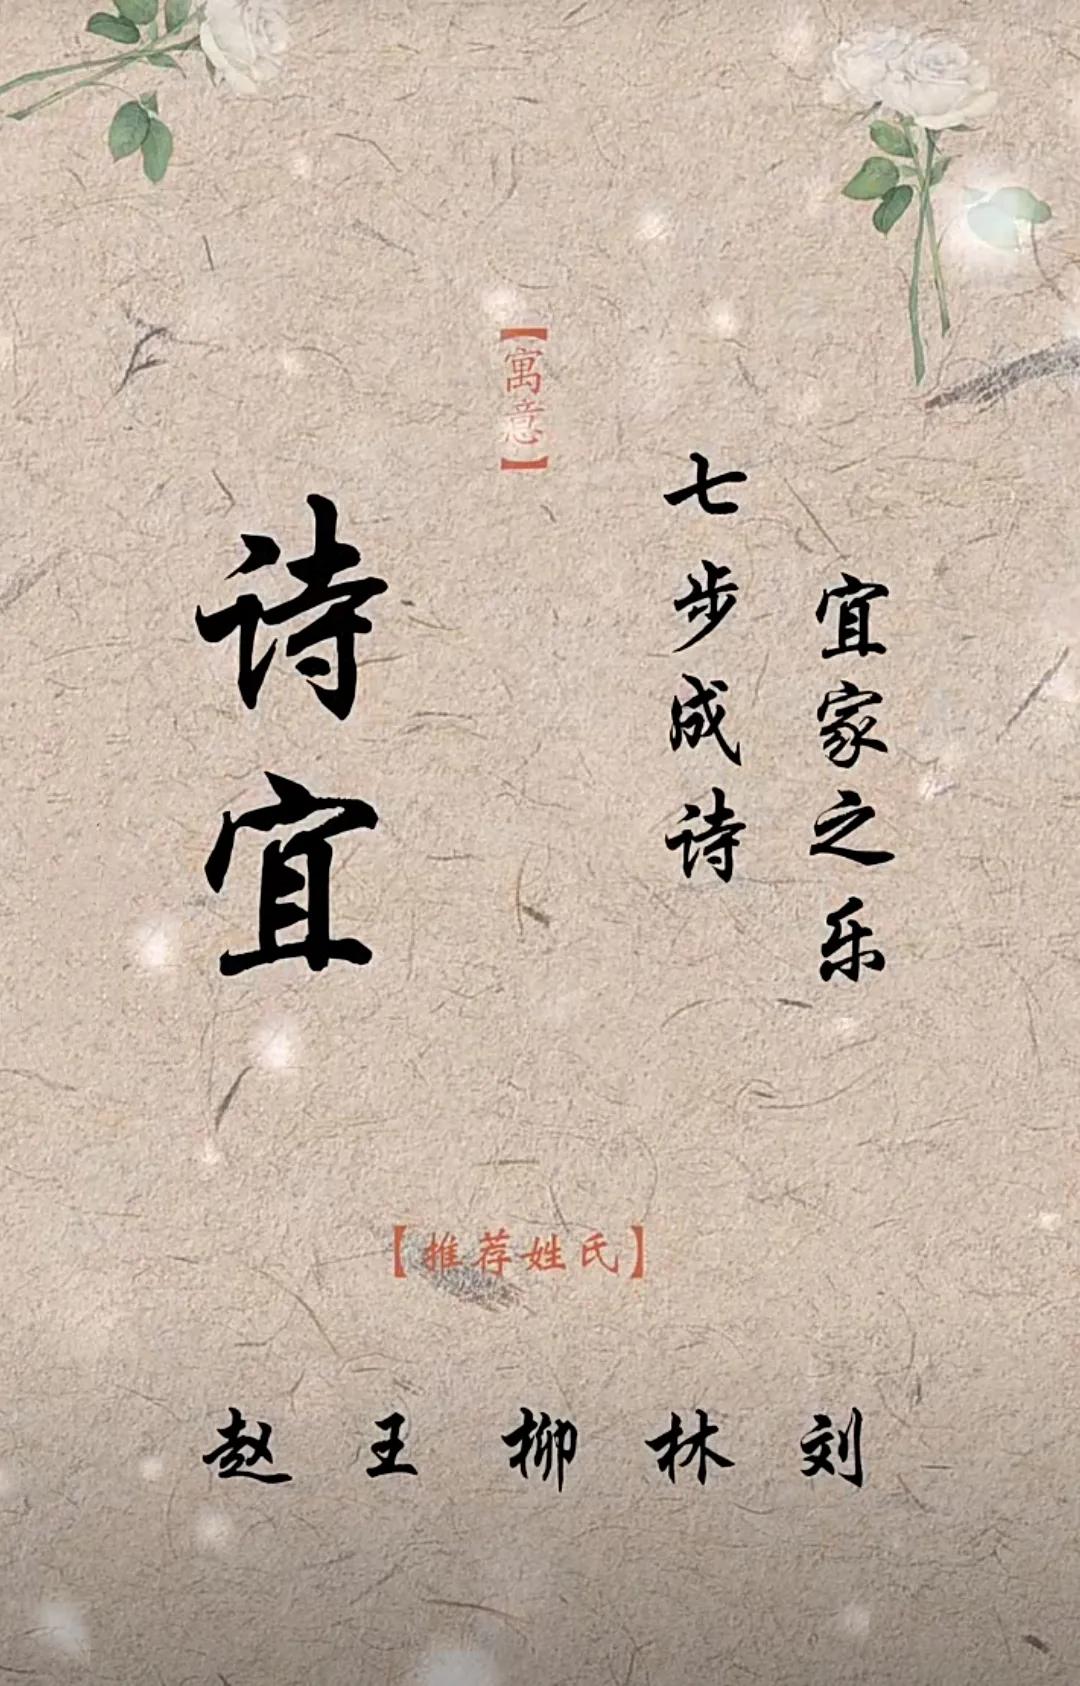 诗宜
【寓意】
七步成诗
宜家之乐
【推荐姓氏】
赵 王 柳 林 刘